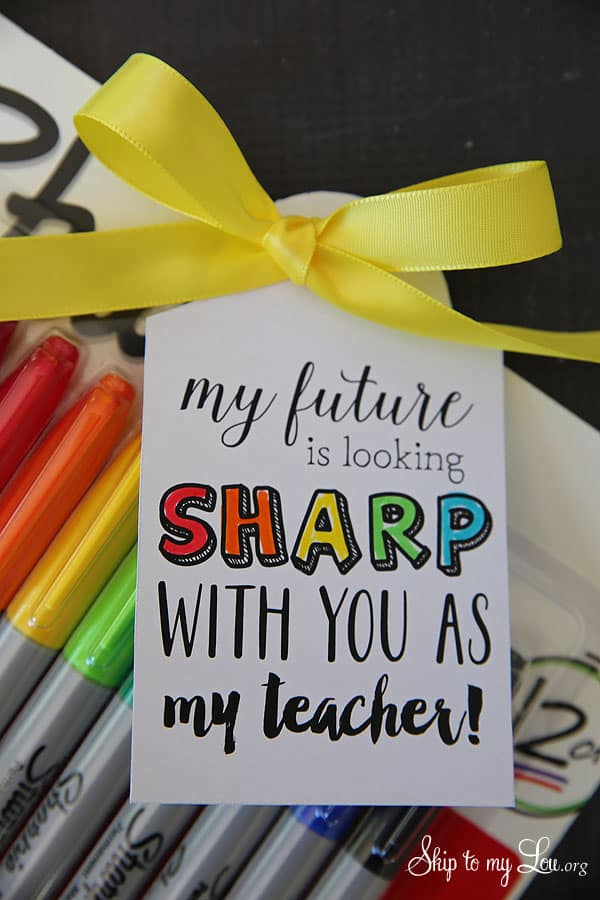 my future
is looking
SHARP
WITH YOU AS
my teacher!
12 c
Sharpie
Sharpie
Skip to my Lou.org